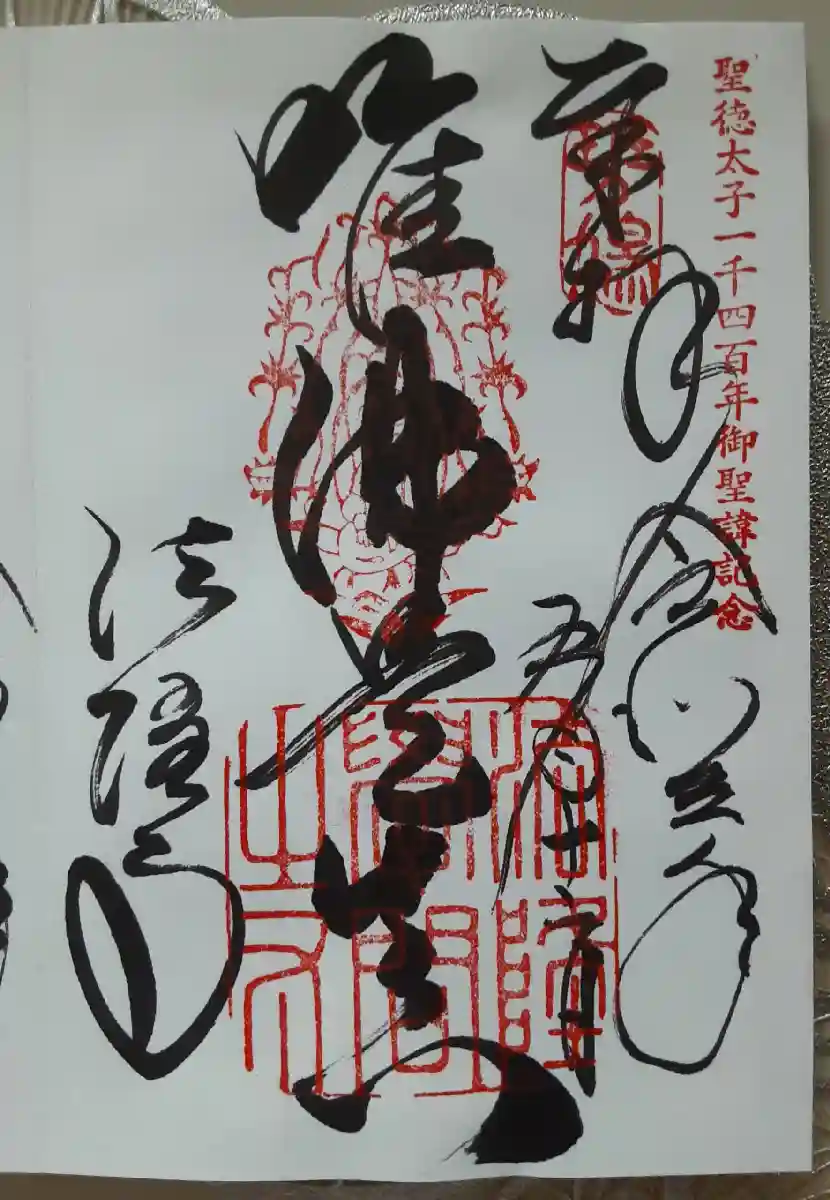 聖徳太子一千四百年御聖諱記念
奉拝
令和
年
五月十
日
唯佛是真
法隆寺